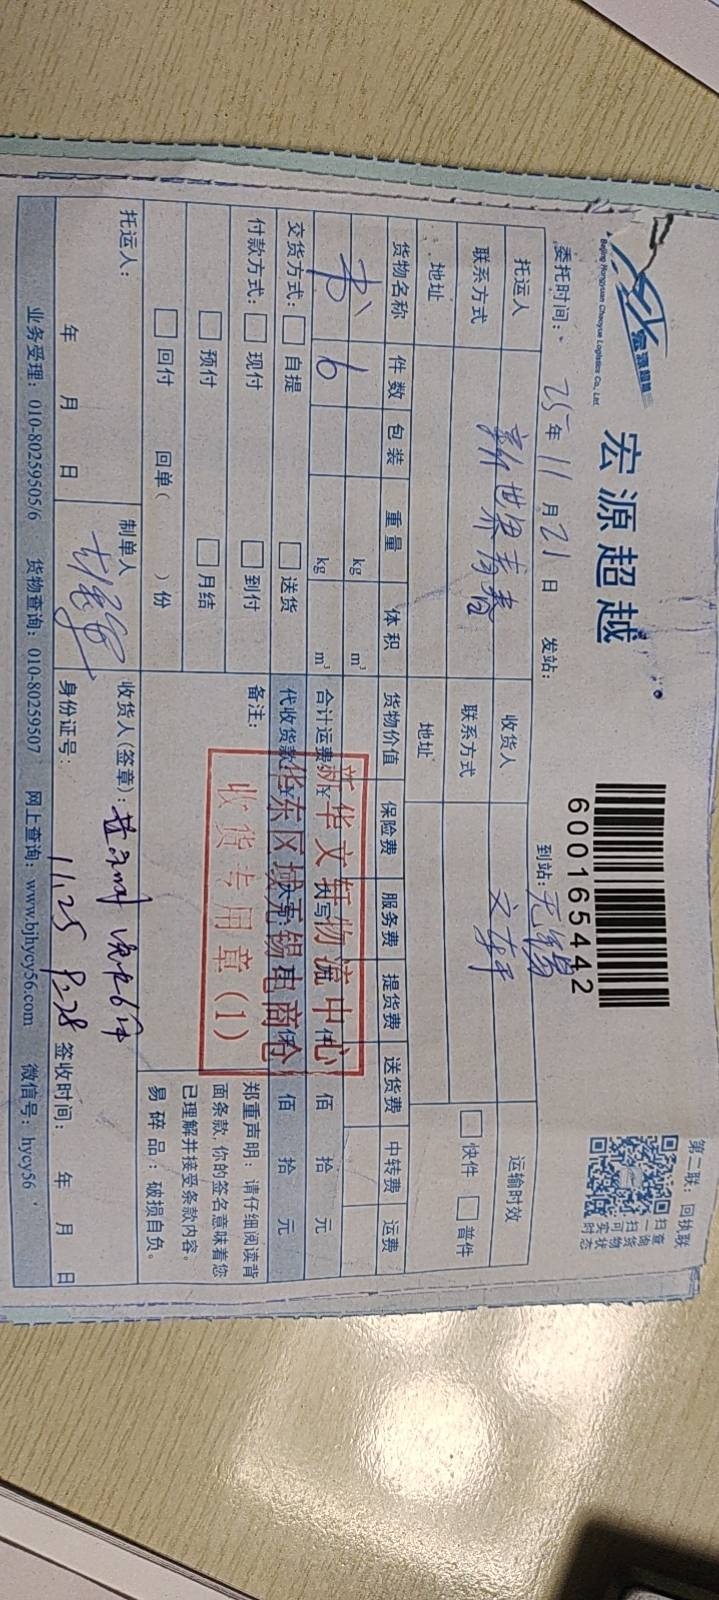 宏源超越
Beijing Hongyuan Chaoyue Logistics Co., Ltd.
宏源超越
600165442
第二联：回执联
扫一扫可实时
查询货物状态
委托时间： 25年 11月 21日 发站： 到站：无锡
托运人 新世界青春 收货人 文轩 运输时效
联系方式 联系方式 快件 普件
地址 地址
货物名称 件数 包装 重量 体积 货物价值 保险费 服务费 提货费 送货费 中转费 运费
书 6 kg m³
kg m³ 合计运费 ¥ 大写 仟 佰 拾 元
交货方式： 自提 送货 代收货款 ¥ 大写 仟 佰 拾 元
付款方式： 现付 到付 备注：
预付 月结
回付 回单（ ）份
新华文轩物流中心
华东区域无锡电商仓
收货专用章(1)
郑重声明：请仔细阅读背
面条款,你的签名意味着您
已理解并接受条款内容。
易碎品：破损自负。
托运人： 制单人 收货人(签章)：
年 月 日 身份证号： 11.25 签收时间： 年 月 日
业务受理：010-80259505/6 货物查询：010-80259507 网上查询：www.bjhycy56.com 微信号：hycy56